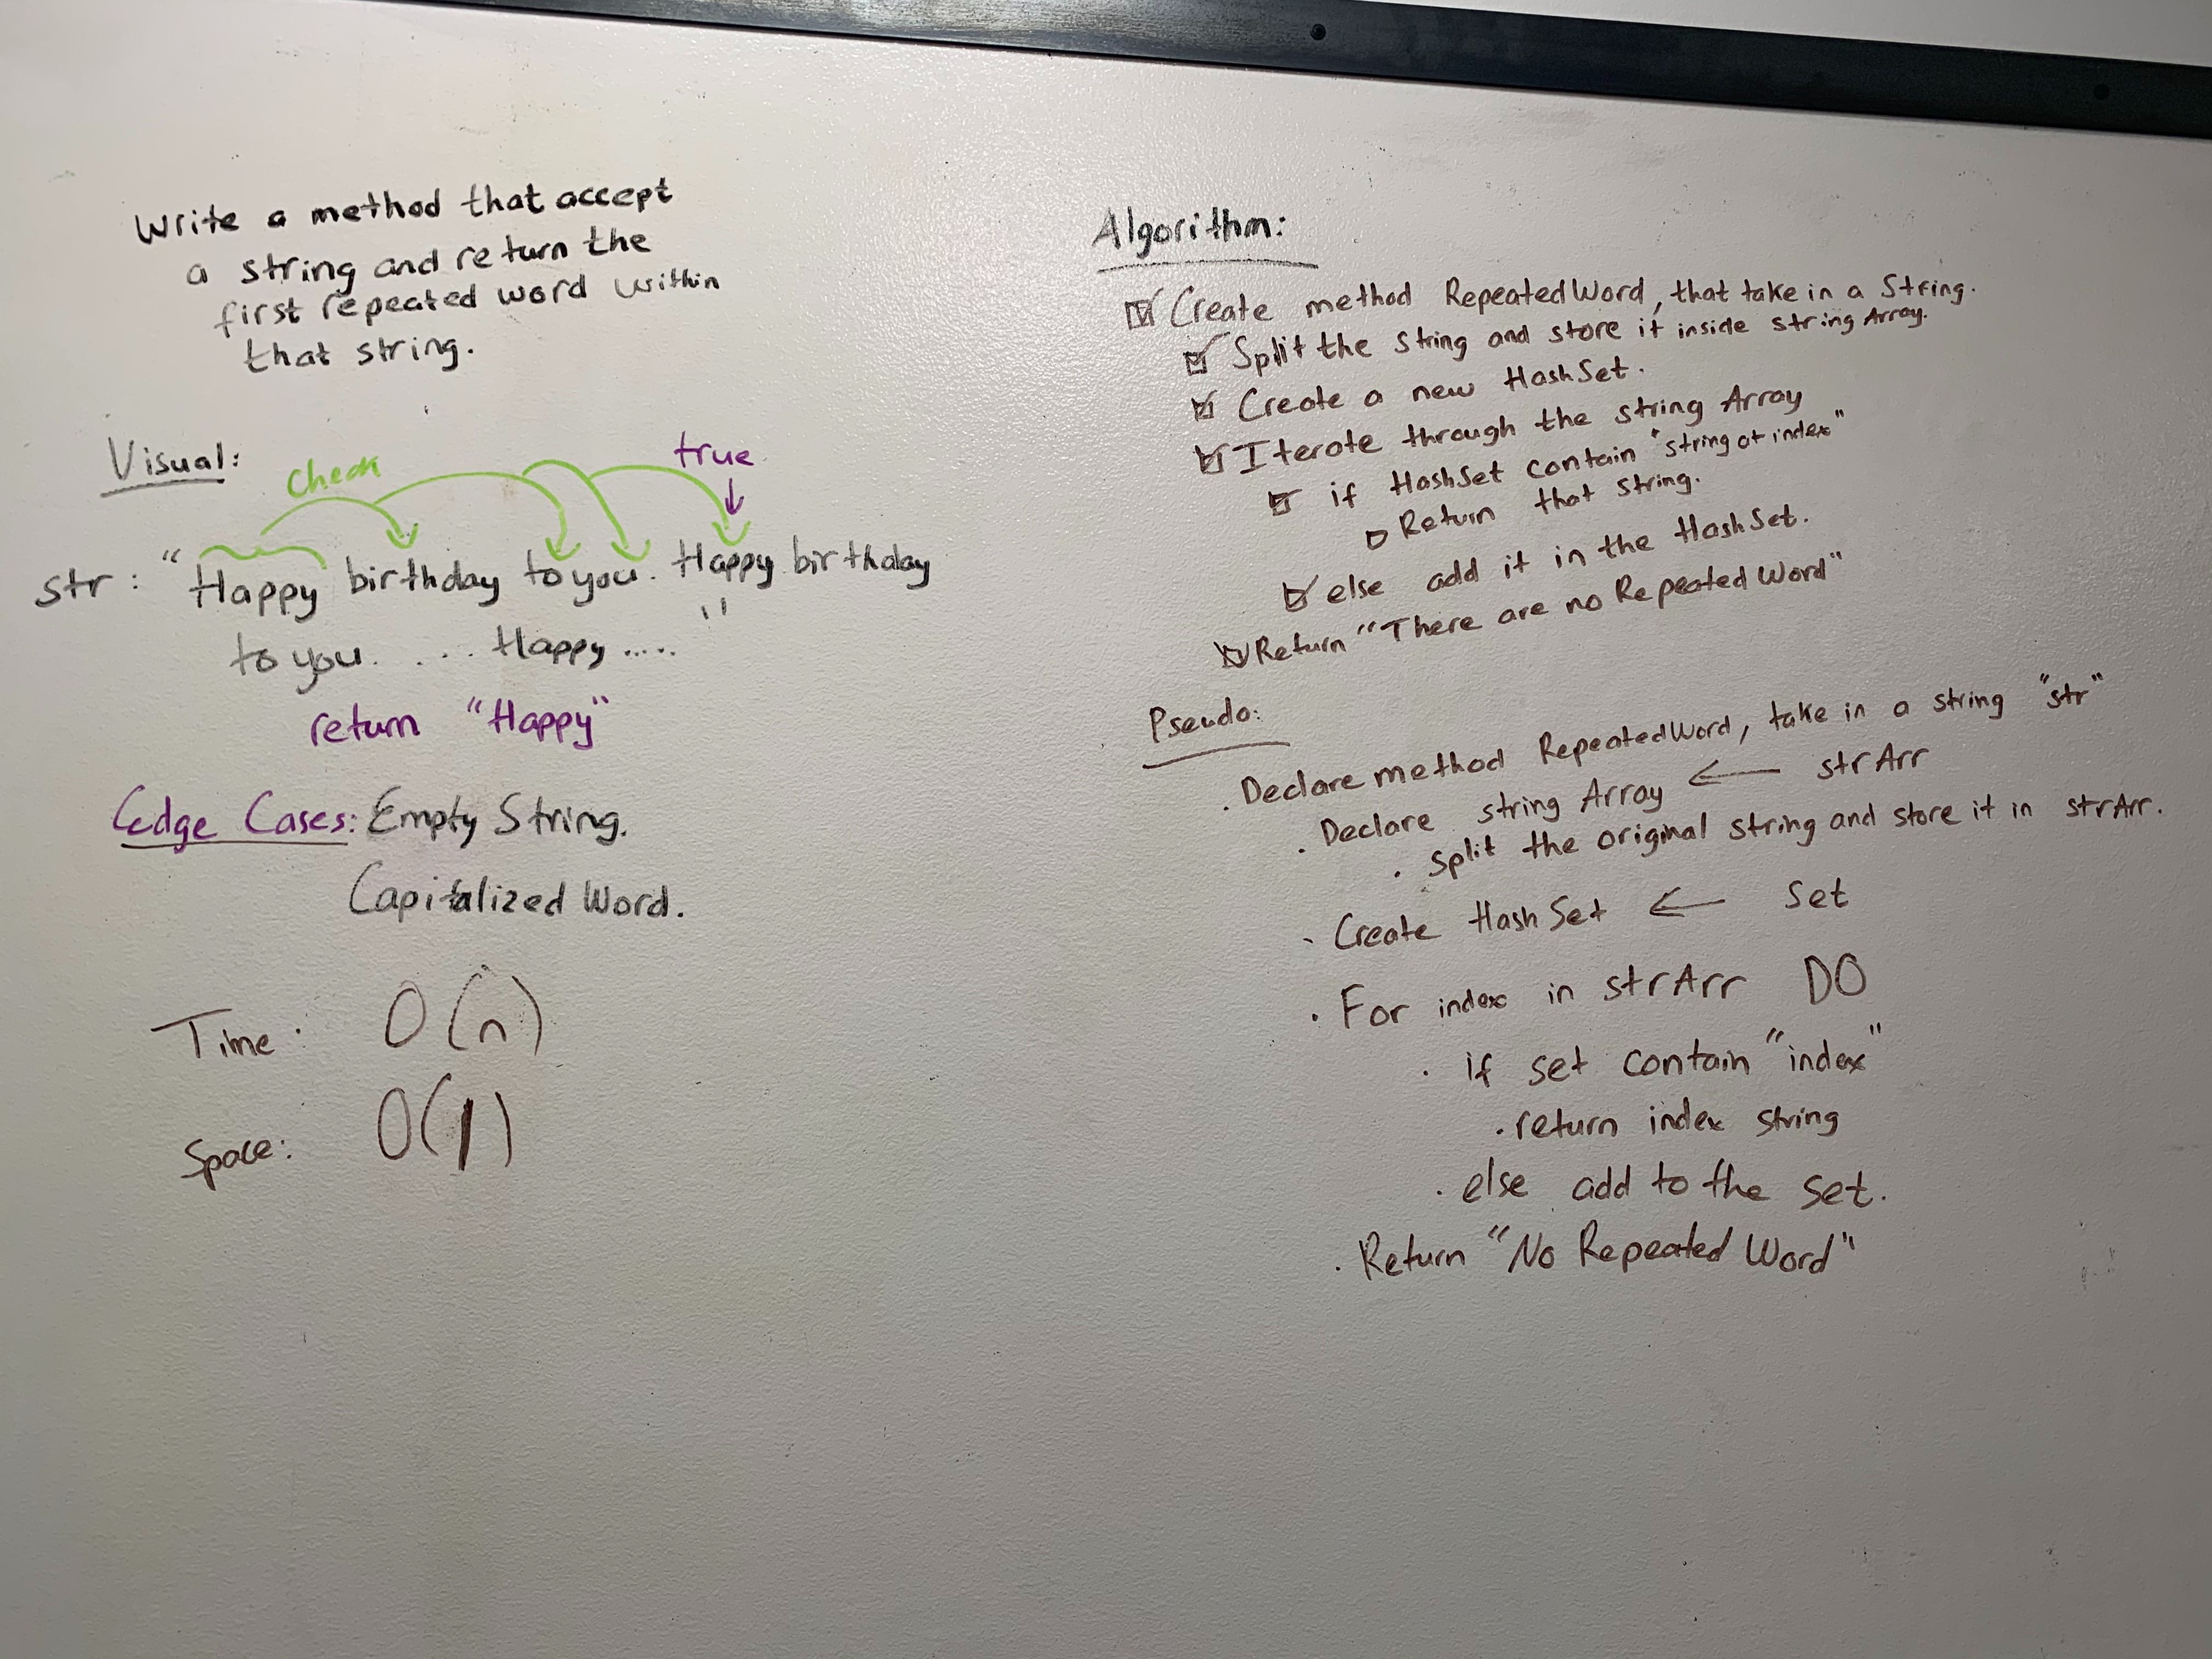 Write a method that accept
a string and return the
first repeated word within
that string.
Visual:
check
true
str : "Happy birthday to you. Happy birthday
to you. ... Happy ....."
return "Happy"
Edge Cases: Empty String.
Capitalized Word.
Time: O(n)
Space: O(1)
Algorithm:
Create method RepeatedWord, that take in a String.
Split the string and store it inside string Array.
Create a new HashSet.
Iterate through the string Array
if HashSet contain "string at index"
Return that string.
else add it in the HashSet.
Return "There are no Repeated Word"
Pseudo:
. Declare method RepeatedWord, take in a string "str"
. Declare string Array ← strArr
. Split the original string and store it in strArr.
. Create HashSet ← Set
. For index in strArr DO
. if set contain "index"
. return index string
. else add to the set.
. Return "No Repeated Word"